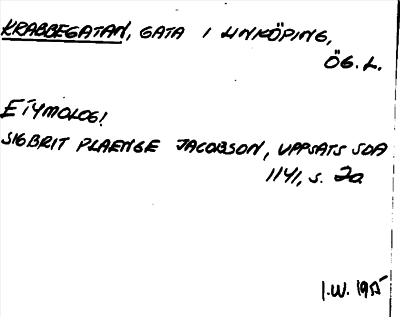 KRABBEGATAN, GATA I LINKÖPING,
ÖG. L.
ETYMOLOGI
SIGBRIT PLAENGE JACOBSON, UPPSATS SOA
1141, s. 20
I.W. 1985